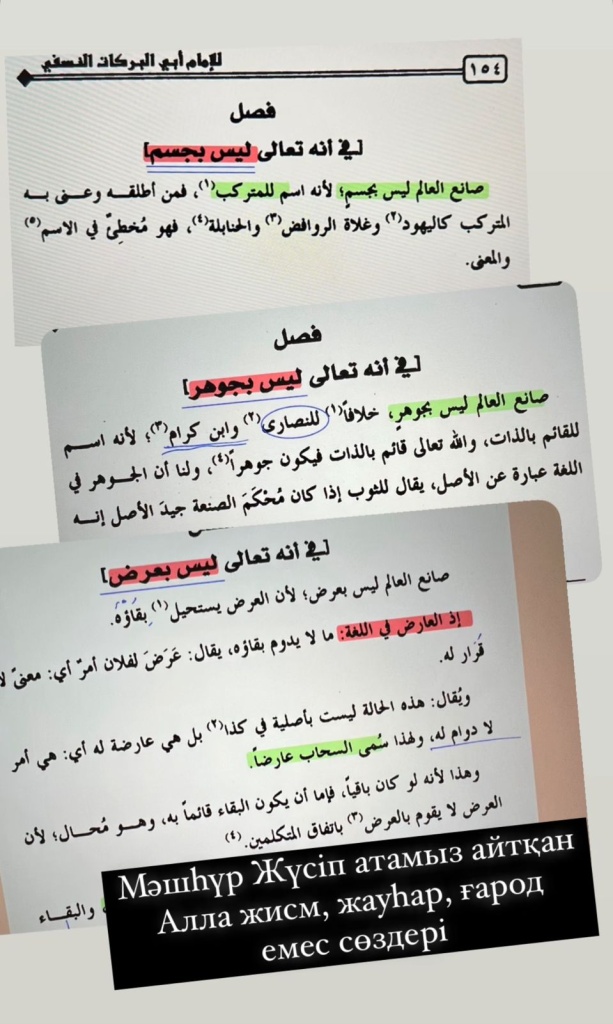 للإمام أبي البركات النسفي
١٥٤
فصل
[في أنه تعالى ليس بجسم]
صانع العالم ليس بجسم؛ لأنه اسم للمتركب(١)، فمن أطلقه وعنى به
المتركب كاليهود(٢) وغلاة الروافض(٣) والحنابلة(٤)، فهو مُخطِئٌ في الاسم(٥)
والمعنى.
فصل
[في أنه تعالى ليس بجوهر]
صانع العالم ليس بجوهرٍ، خلافاً(١) للنصارى(٢) وابن كرام(٣)؛ لأنه اسم
للقائم بالذات، والله تعالى قائم بالذات فيكون جوهراً(٤)، ولنا أن الجوهر في
اللغة عبارة عن الأصل، يقال للثوب إذا كان مُحْكَمَ الصنعة جيدَ الأصل إنه
[في أنه تعالى ليس بعرض]
صانع العالم ليس بعرض؛ لأن العرض يستحيل(١) بقاؤه.
إذ العارض في اللغة: ما لا يدوم بقاؤه، يقال: عَرَضَ لفلان أمرٌ أي: معنىً لا
قَرار له.
ويُقال: هذه الحالة ليست بأصلية في كذا(٢) بل هي عارضة له أي: هي أمر
لا دوام له، ولهذا سُمى السحاب عارضاً.
وهذا لأنه لو كان باقياً، فإما أن يكون البقاء قائماً به، وهو مُحال؛ لأن
العرض لا يقوم بالعرض(٣) باتفاق المتكلمين.(٤)
والبقاء
Мәшһүр Жүсіп атамыз айтқан
Алла жисм, жауһар, ғарод
емес сөздері